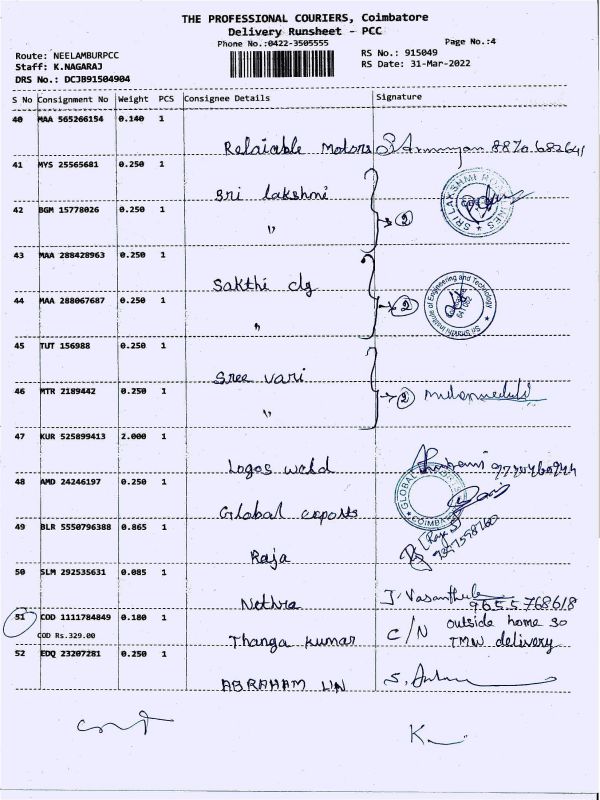 THE PROFESSIONAL COURIERS, Coimbatore
Delivery Runsheet - PCC
Phone No.:0422-3505555
Page No.:4
Route: NEELAMBURPCC
RS No.: 915049
Staff: K.NAGARAJ
RS Date: 31-Mar-2022
DRS No.: DCJ891504904
S No Consignment No Weight PCS Consignee Details Signature
40 MAA 565266154 0.140 1
Relaiable Motors 8870 682641
41 MYS 25565681 0.250 1
Sri lakshmi
42 BGM 15778026 0.250 1
" 2
43 MAA 288428963 0.250 1
Sakthi clg
44 MAA 288067687 0.250 1
" 2
45 TUT 156988 0.250 1
Sree vari
46 MTR 2189442 0.250 1
" 2
47 KUR 525899413 2.000 1
Logos weld
48 AMD 24246197 0.250 1
Global exports
49 BLR 5550796388 0.865 1
Raja
50 SLM 292535631 0.085 1
Nethra J. Vasanthi
9655768618
51 COD 1111784849 0.180 1
COD Rs.329.00
Thanga kumar C/N outside home so
TMW delivery
52 EDQ 23207281 0.250 1
ABRAHAM LIN